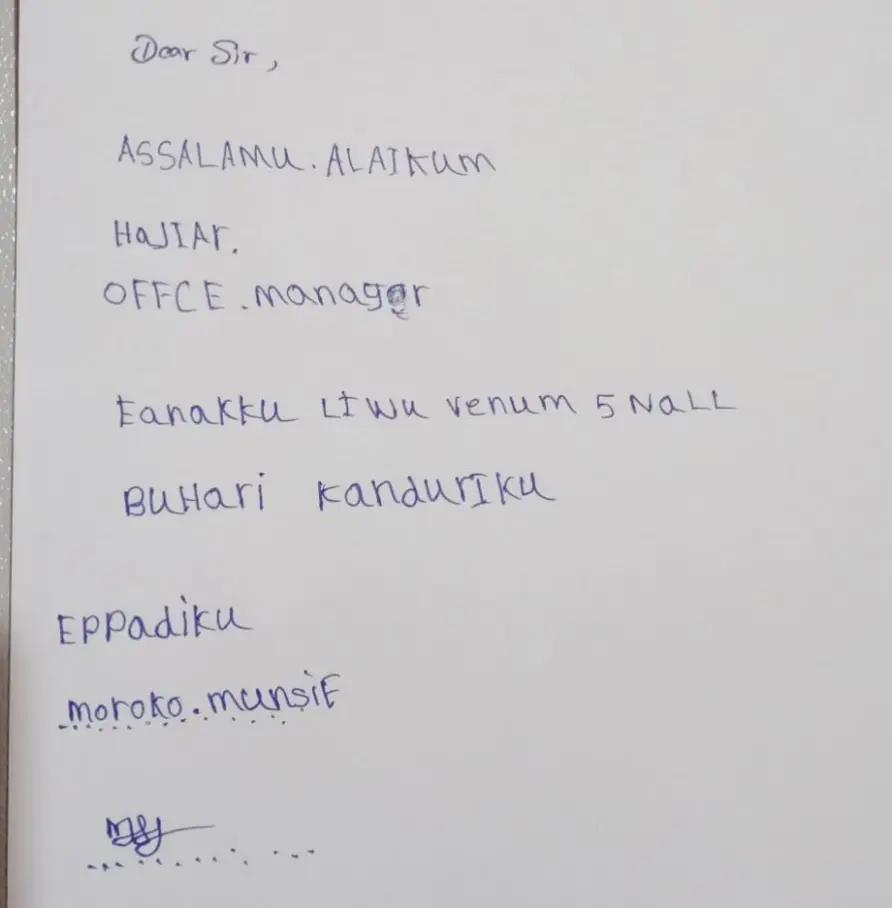 Dear Sir,
ASSALAMU. ALAIKUM
HaJIAr.
OFFCE. manager
Eanakku LIWU venum 5 NaLL
BUHari KandurIKU
EPPadiKU
moroko. munsif